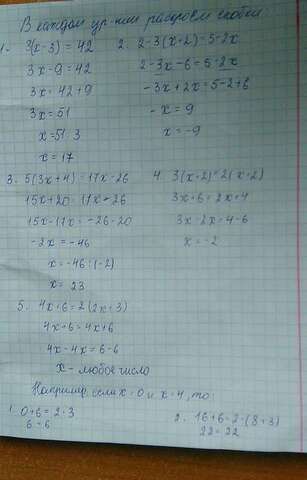 В каждом ур-нии раскроем скобки
1. 3(x-3) = 42
3x-9 = 42
3x = 42+9
3x = 51
x = 51:3
x = 17
2. 2-3(x+2)=5-2x
2-3x-6=5-2x
-3x+2x=5-2+6
-x = 9
x = -9
3. 5(3x+4) = 17x-26
15x+20=17x-26
15x-17x = -26-20
-2x = -46
x = -46:(-2)
x = 23
4. 3(x+2)=2(x+2)
3x+6=2x+4
3x-2x=4-6
x = -2
5. 4x+6=2(2x+3)
4x+6=4x+6
4x-4x=6-6
x - любое число
Например если x=0 и x=4, то:
1. 0+6=2·3
6=6
2. 16+6=2·(8+3)
22=22